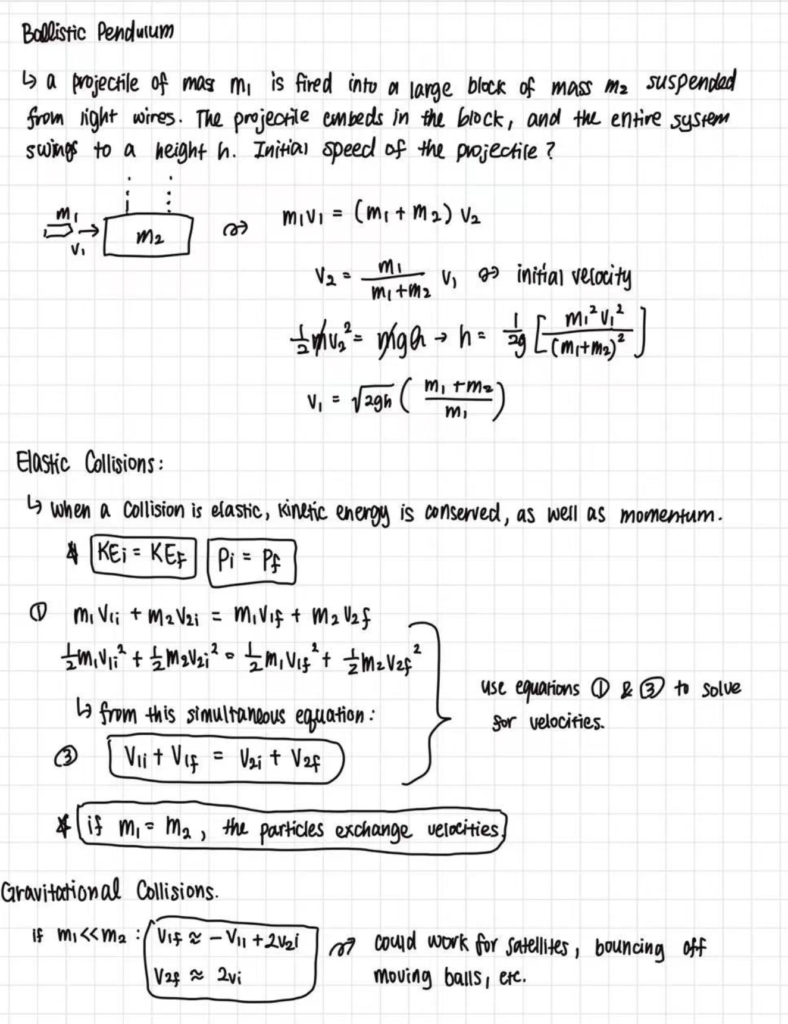 Ballistic Pendulum
↳ a projectile of mass m₁ is fired into a large block of mass m₂ suspended
from light wires. The projectile embeds in the block, and the entire system
swings to a height h. Initial speed of the projectile?
m₁
v₁
m₂
m₁v₁ = (m₁ + m₂) v₂
v₂ = m₁/(m₁+m₂) v₁ ⇒ initial velocity
½mv₂² = mgh → h = 1/2g [m₁²v₁²/(m₁+m₂)²]
v₁ = √2gh ((m₁ + m₂)/m₁)
Elastic Collisions:
↳ when a collision is elastic, kinetic energy is conserved, as well as momentum.
* KEi = KEf Pi = Pf
① m₁V₁i + m₂V₂i = m₁V₁f + m₂V₂f
½m₁V₁i² + ½m₂V₂i² = ½m₁V₁f² + ½m₂V₂f²
↳ from this simultaneous equation:
③ V₁i + V₁f = V₂i + V₂f
use equations ① & ③ to solve
for velocities.
* if m₁ = m₂, the particles exchange velocities.
Gravitational Collisions.
If m₁<<m₂: V₁f ≈ -V₁₁ + 2v₂i
V₂f ≈ 2vi
could work for satellites, bouncing off
moving balls, etc.